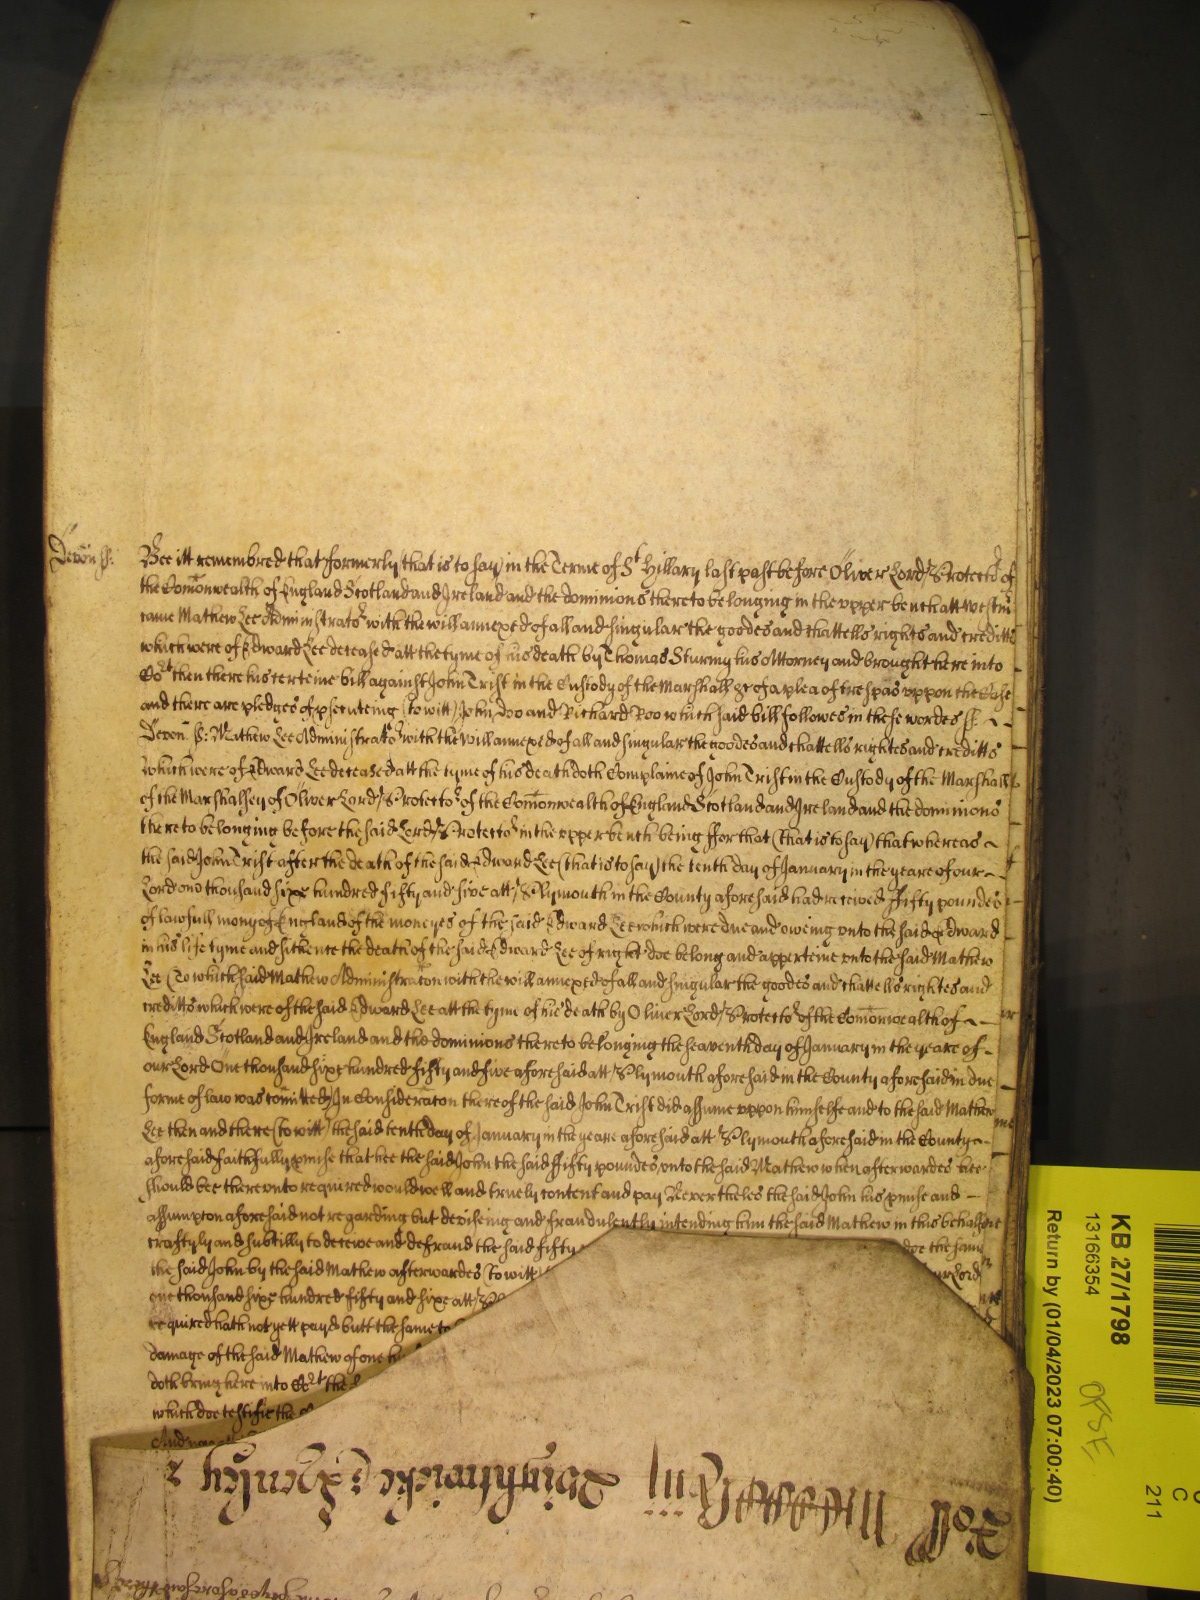 Devon ss:
Bee itt remembred that formerly (that is to say) in the Terme of St Hillary last past before Oliver Lord Protector of
the Comonwealth of England Scotland and Ireland and the dominions thereto belonging in the upper bench att Westm
came Mathew Lee Administrator with the will annexed of all and singular the goodes and chattells rights and creditts
which were of Edward Lee deceased att the tyme of his death by Thomas Sturmy his Attorney and brought here into
Cort then there his certeine bill against John Trist in the Custody of the Marshall &c of a plea of trespas uppon the Case
and there are pledges of psecuteing (to witt) John Doo and Richard Roo which said bill followes in these wordes ss:
Devon ss: Mathew Lee Administrator with the will annexed of all and singular the goodes and chattells rightes and creditts
which were of Edward Lee deceased att the tyme of his death doth Complaine of John Trist in the Custody of the Marshall
of the Marshalsey of Oliver Lord Protector of the Comonwealth of England Scotland and Ireland and the dominions
thereto belonging before the said Lord Protector in the upper bench being ffor that (that is to say) that whereas
the said John Trist after the death of the said Edward Lee (that is to say) the tenth day of January in the yeare of our
Lord one thousand sixe hundred fifty and five att Plymouth in the County aforesaid had received ffifty poundes
of lawfull mony of England of the moneyes of the said Edward Lee which were due and oweing unto the said Edward
in his life tyme and sithence the death of the said Edward Lee of right doe belong and apperteine unto the said Mathew
Lee (To which said Mathew Administracon with the will annexed of all and singular the goodes and chattells rightes and
creditts which were of the said Edward Lee att the tyme of his death by Oliver Lord Protector of the Comonwealth of
England Scotland and Ireland and the dominions thereto belonging the seaventh day of January in the yeare of
our Lord One thousand sixe hundred fifty and five aforesaid att Plymouth aforesaid in the County aforesaid in due
forme of law was comitted) In Consideracon thereof the said John Trist did assume uppon himselfe and to the said Mathew
Lee then and there (to witt) the said tenth day of January in the yeare aforesaid att Plymouth aforesaid in the County
aforesaid faithfully pmise that hee the said John the said ffifty poundes unto the said Mathew when afterwardes hee
should bee thereunto required would well and truely content and pay Neverthelesse the said John his pmise and
assumpcon aforesaid not regarding but deviseing and fraudulently intending him the said Mathew in this behalfe
craftyly and subtilly to deceive and defraud the said fifty doe the same
the said John by the said Mathew afterwardes (to witt Lord
one thousand sixe hundred fifty and sixe att
required hath not yett payd butt the same to
damage of the said Mathew of one
doth bring here into Cort the
which doe testifie the
And now
Wightwicke &
KB 27/1798
13166354
Return by (01/04/2023 07:00:40)
C
211